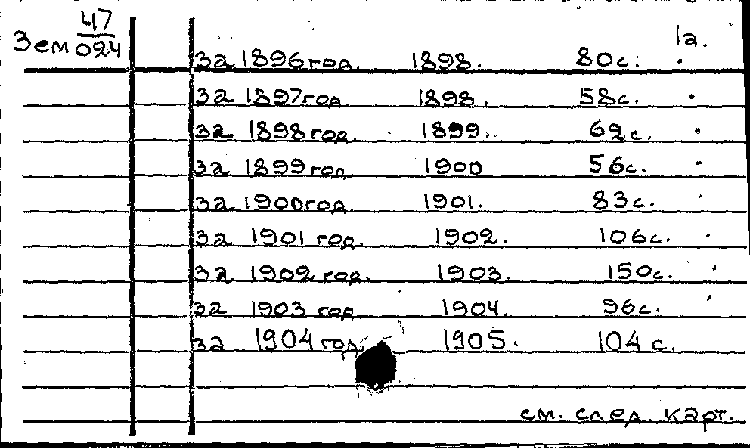 Зем 47/024
1а.
за 1896 год. 1898. 80 с.
за 1897 год 1898. 58 с.
за 1898 год. 1899. 62 с.
за 1899 год 1900 56 с.
за 1900 год 1901. 83 с.
за 1901 год. 1902. 106 с.
за 1902 год. 1903. 150 с.
за 1903 год 1904. 96 с.
за 1904 год. 1905. 104 с.
см. след. карт.